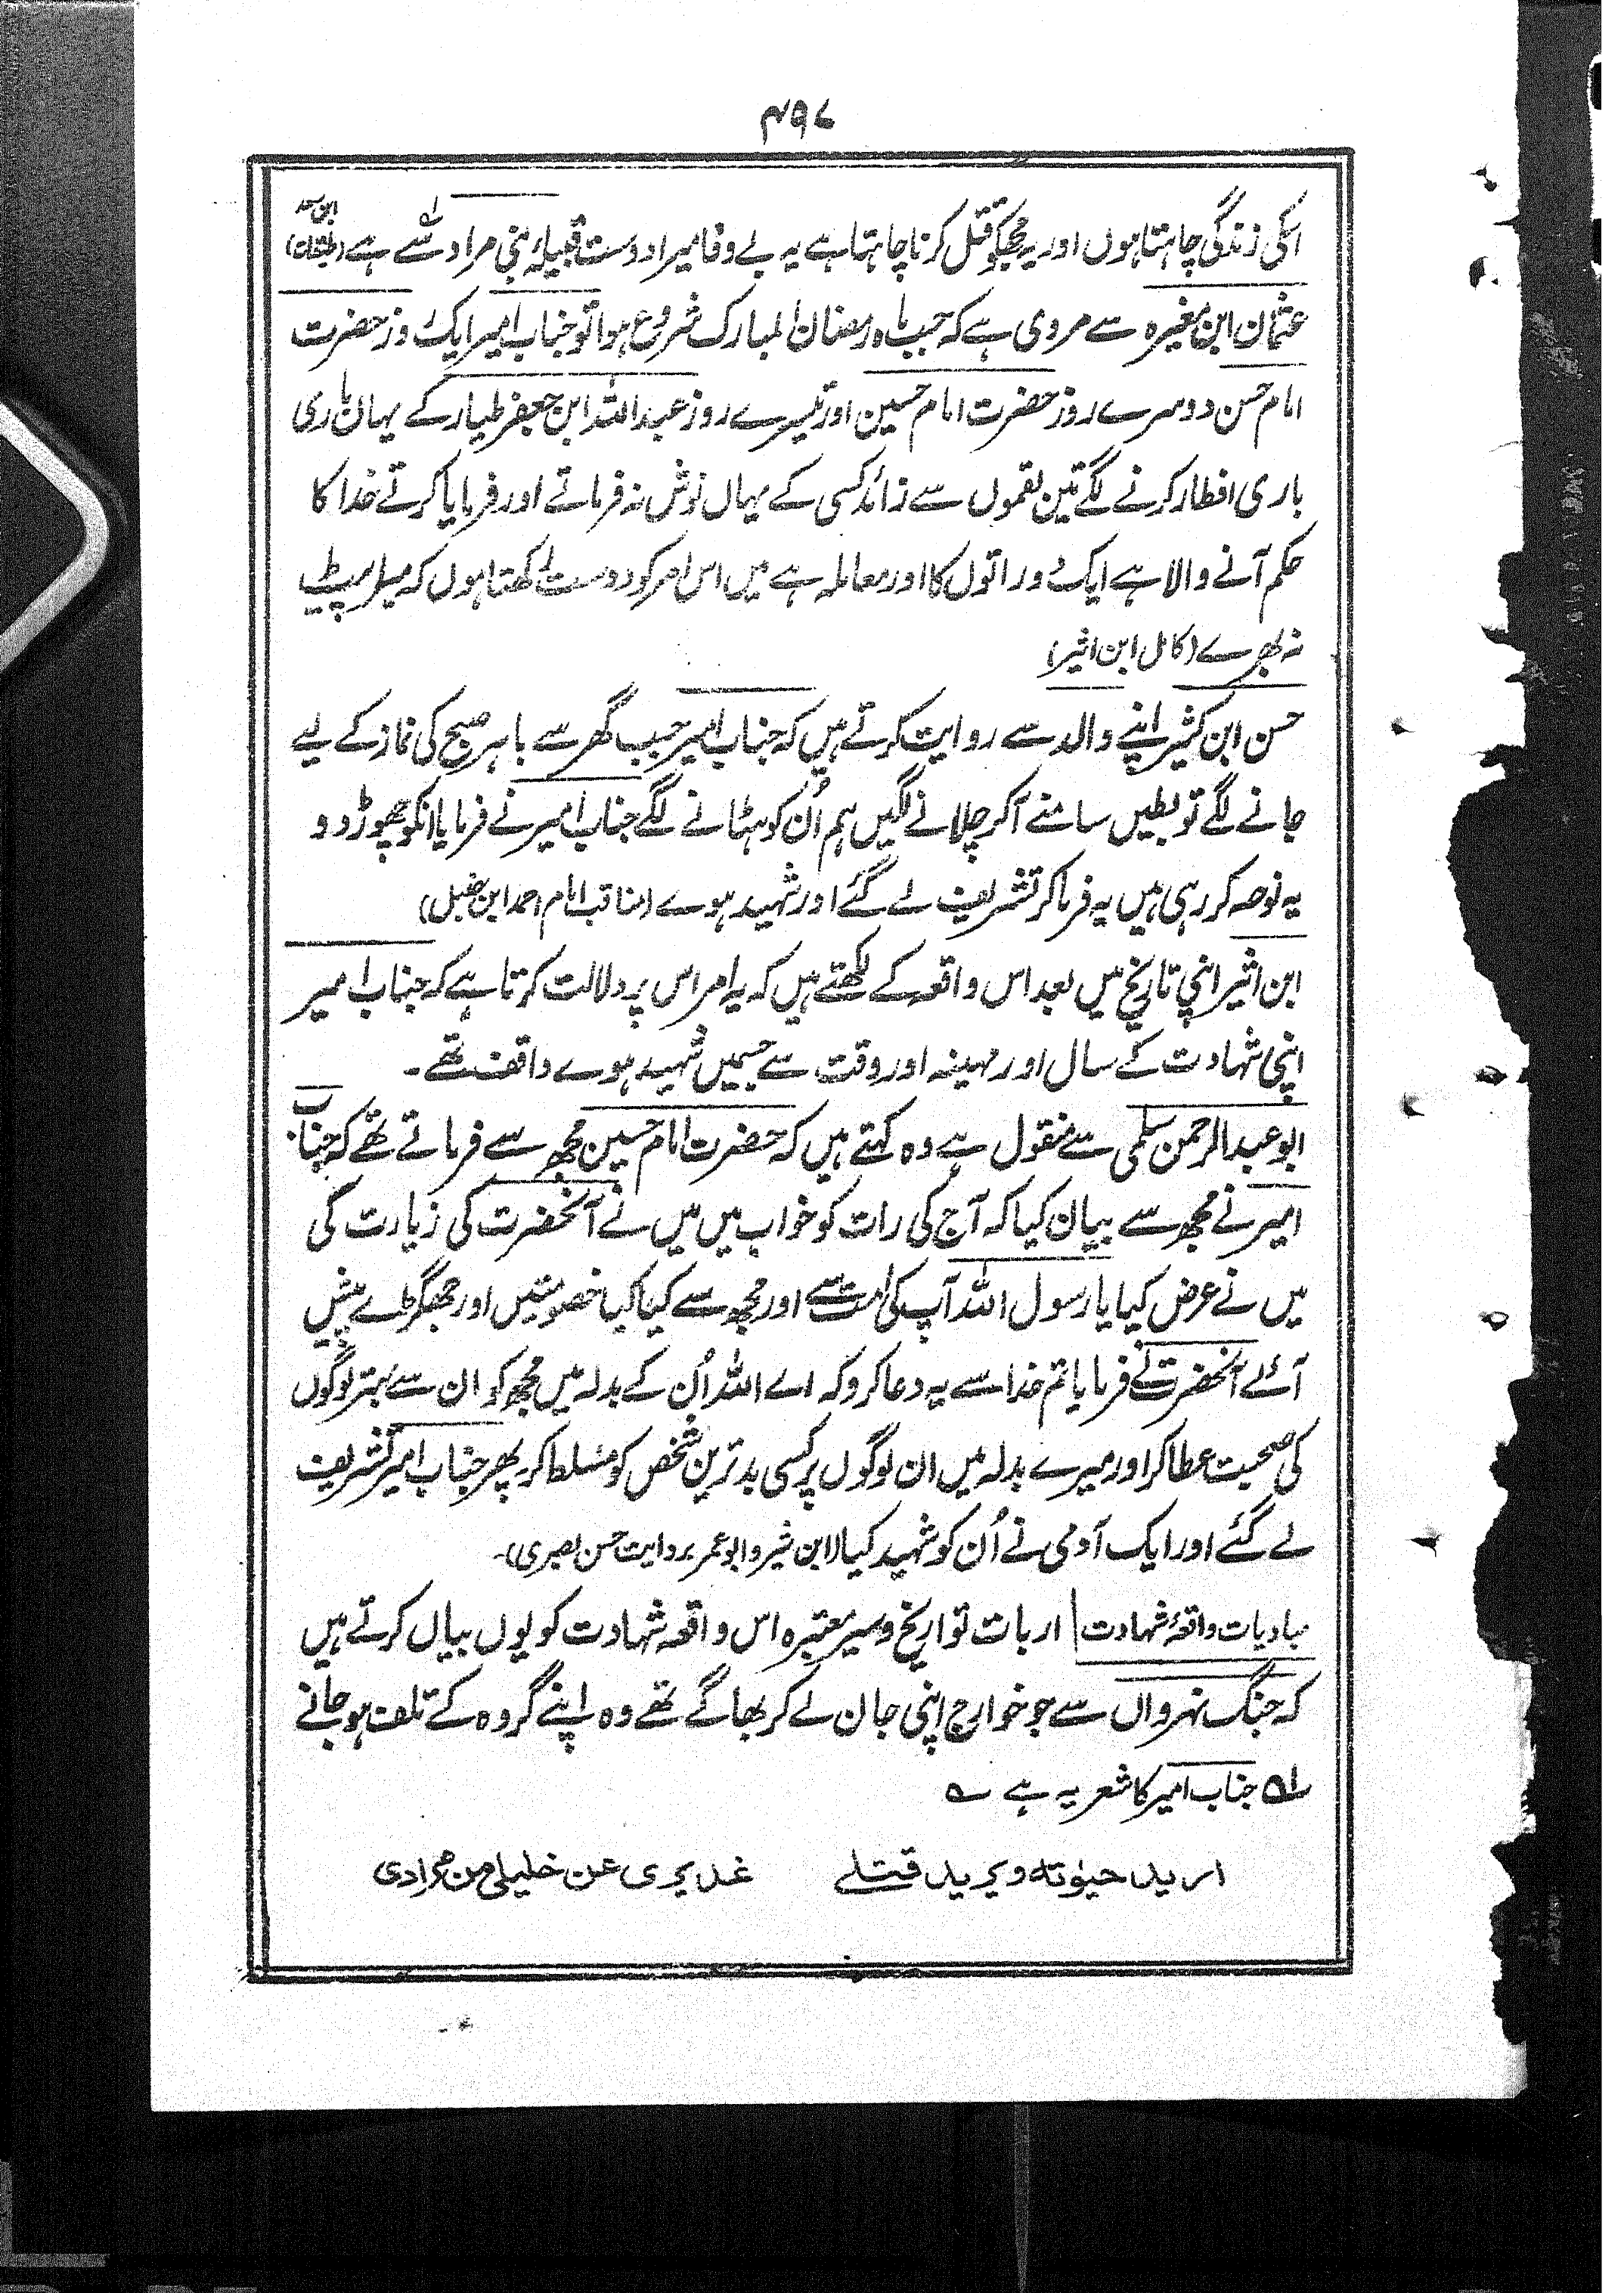 ۴۹۷
اسکی زندگی چاہتا ہوں اور یہ مجھکو قتل کرنا چاہتا ہے یہ بے وفا میرا دوست قبیلۂ بنی مراد سے ہے (طبقات ابن سعد)
عثمان ابن مغیرہ سے مروی ہے کہ جب ماہ رمضان المبارک شروع ہوا تو جناب امیر ایک روز حضرت
امام حسن دوسرے روز حضرت امام حسین اور تیسرے روز عبداللہ ابن جعفر طیار کے یہاں باری
باری افطار کرنے لگے تین لقموں سے زائد کسی کے یہاں نوش نہ فرماتے اور فرمایا کرتے خدا کا
حکم آنے والا ہے ایک دو راتوں کا اور معاملہ ہے میں اس امر کو دوست رکھتا ہوں کہ میرا پیٹ
نہ بھرے (کامل ابن اثیر)
حسن ابن کثیر اپنے والد سے روایت کرتے ہیں کہ جناب امیر جب گھر سے باہر صبح کی نماز کے لیے
جانے لگے تو بطیں سامنے آکر چلانے لگیں ہم اُن کو ہٹانے لگے جناب امیر نے فرمایا انکو چھوڑ دو
یہ نوحہ کر رہی ہیں یہ فرما کر تشریف لے گئے اور شہید ہوے (مناقب امام احمد ابن حنبل)
ابن اثیر اپنی تاریخ میں بعد اس واقعہ کے لکھتے ہیں کہ یہ امر اس پر دلالت کرتا ہے کہ جناب امیر
اپنی شہادت کے سال اور مہینہ اور وقت سے جسمیں شہید ہوے واقف تھے۔
ابو عبدالرحمن سلمی سے منقول ہے وہ کہتے ہیں کہ حضرت امام حسین مجھ سے فرماتے تھے کہ جناب
امیر نے مجھ سے بیان کیا کہ آج کی رات کو خواب میں میں نے آنحضرت کی زیارت کی
میں نے عرض کیا یا رسول اللہ آپ کی امت سے اور مجھ سے کیا کیا خصومتیں اور جھگڑے پیش
آئے آنحضرت نے فرمایا تم خدا سے یہ دعا کرو کہ اے اللہ اُن کے بدلہ میں مجھ کو ان سے بہتر لوگوں
کی صحبت عطا کر اور میرے بدلہ میں ان لوگوں پر کسی بدترین شخص کو مسلط کر پھر جناب امیر تشریف
لے گئے اور ایک آدمی نے اُن کو شہید کیا (ابن اثیر و ابو عمر بروایت حسن بصری)۔
مبادیات واقعۂ شہادت | اربات تواریخ و سیر معتبرہ اس واقعہ شہادت کو یوں بیان کرتے ہیں
کہ جنگ نہرواں سے جو خوارج اپنی جان لے کر بھاگے تھے وہ اپنے گروہ کے تلف ہو جانے
لہ جناب امیر کا شعر یہ ہے ؎
ارید حیوٰتہ ویرید قتلے غدیری عن خلیلی من مرادی